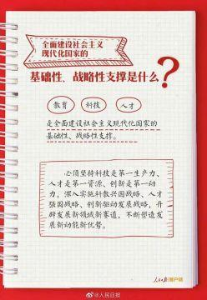 全面建设社会主义
现代化国家的
基础性、战略性支撑是什么?
教育
科技
人才
是全面建设社会主义现代化国家的
基础性、战略性支撑。
必须坚持科技是第一生产力、
人才是第一资源、创新是第一动
力，深入实施科教兴国战略、人才
强国战略、创新驱动发展战略，开
辟发展新领域新赛道，不断塑造发
展新动能新优势。
人民日报 客户端
@人民日报